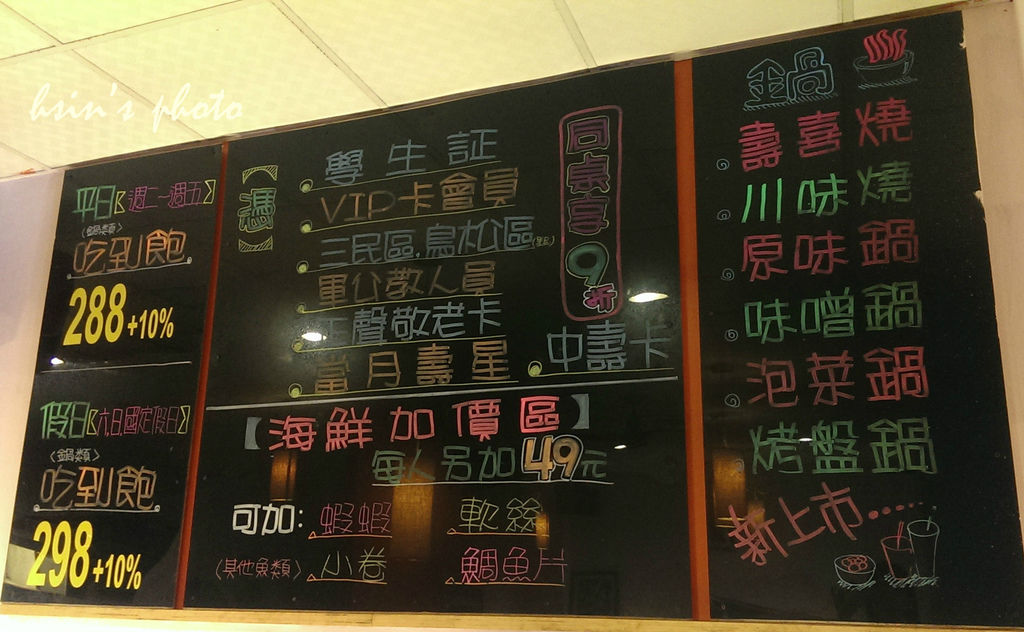 hsin's photo
平日【週一~週五】
(鍋類)
吃到飽
288+10%
假日【六.日.國定假日】
〈鍋類〉
吃到飽
298+10%
【憑】
學生証
VIP卡會員
三民區.鳥松區
軍公教人員
敬老卡
當月壽星
中壽卡
同桌享9折
【海鮮加價區】
每人另加49元
可加:
蝦蝦
軟絲
(其他魚類)
小卷
鯛魚片
鍋
壽喜燒
川味燒
原味鍋
味噌鍋
泡菜鍋
烤盤鍋
新上市......